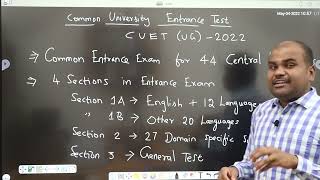 May-04-2022 10:57
Common University Entrance Test
CUET (UG) - 2022
→ Common Entrance Exam for 44 Central
→ 4 Sections in Entrance Exam
Section 1A → English + 12 Languages
" 1B → Other 20 Languages
Section 2 → 27 Domain specific S
Section 3 → General Test